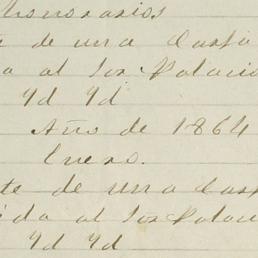 honorarios
de una Carta
al Sor Palacio
Yd Yd
Año de 1864
Enero.
te de una Carp
ida al Sor Palac
Yd Yd